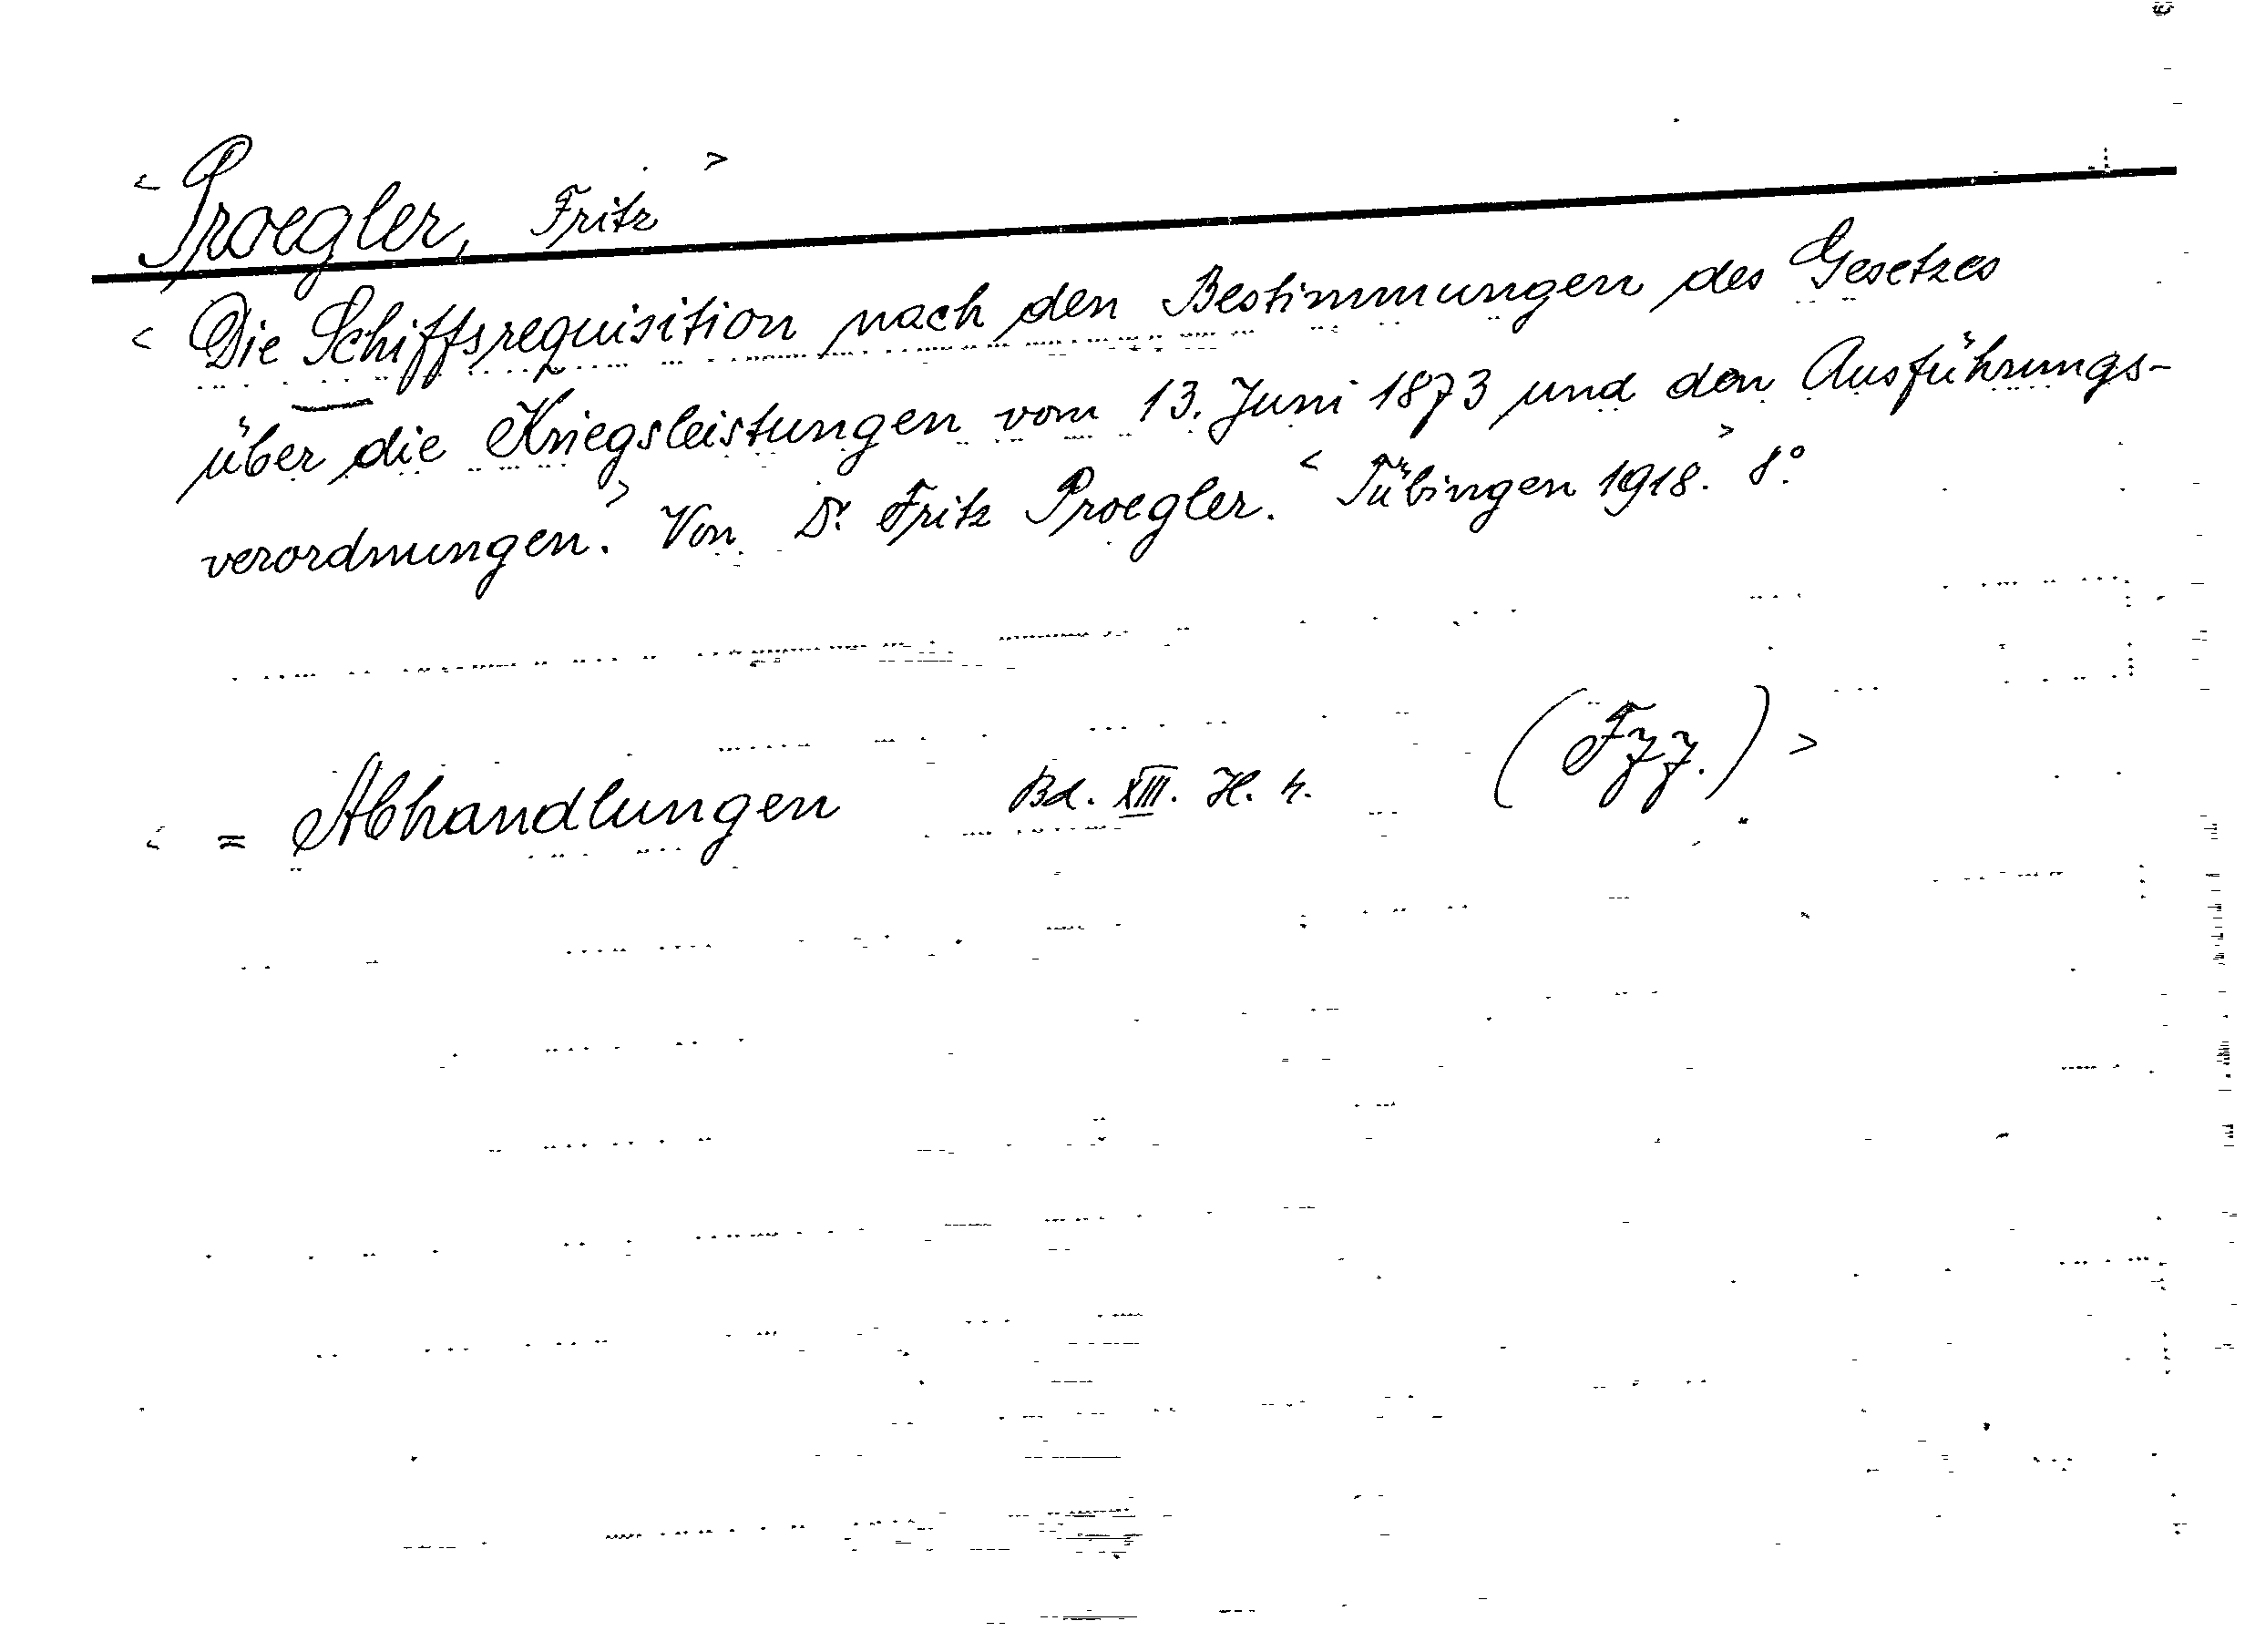 < Proegler, Fritz >
< Die Schiffsrequisition nach den Bestimmungen des Gesetzes
über die Kriegsleistungen vom 13. Juni 1873 und den Ausführungs-
verordnungen.> Von Dr. Fritz Proegler. < Tübingen 1918.> 8°.
< = Abhandlungen Bd. XIII. H. 4. (Fzz.) >